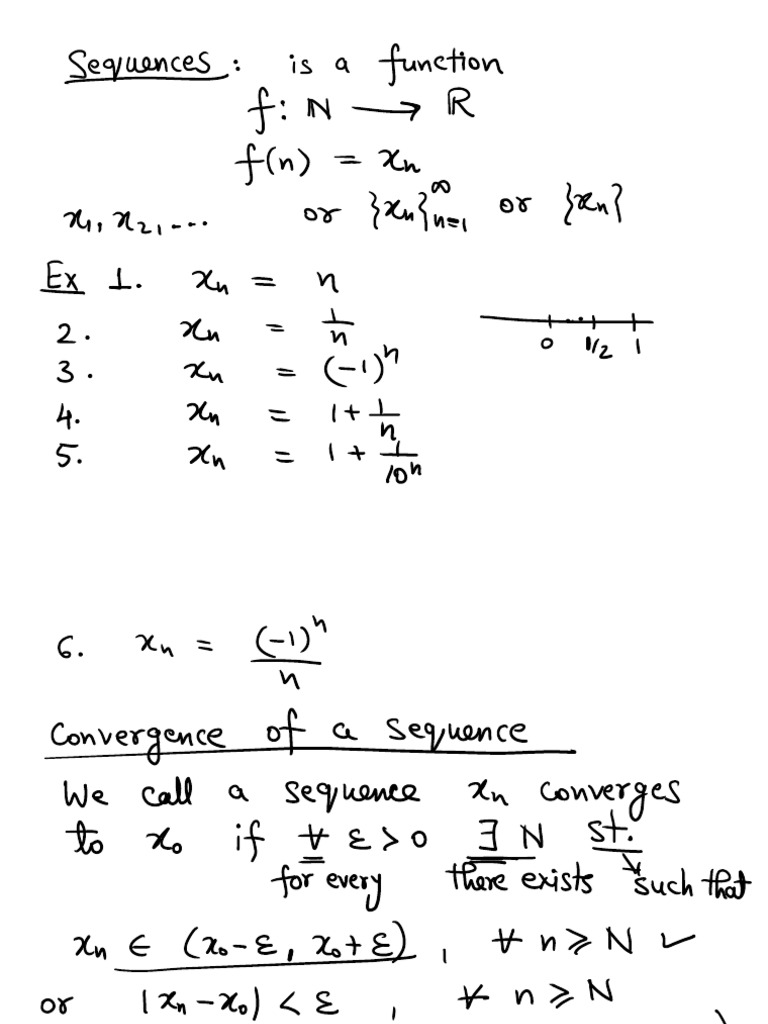 Sequences : is a function
f : ℕ ⟶ ℝ
f(n) = xₙ
x₁, x₂, ... or {xₙ}ₙ₌₁^∞ or {xₙ}
Ex 1. xₙ = n
2. xₙ = 1/n
0 1/2 1
3. xₙ = (-1)ⁿ
4. xₙ = 1 + 1/n
5. xₙ = 1 + 1/10ⁿ
6. xₙ = (-1)ⁿ/n
Convergence of a sequence
We call a sequence xₙ converges
to x₀ if ∀ ε > 0 ∃ N st.
for every there exists such that
xₙ ∈ (x₀-ε, x₀+ε), ∀ n ≥ N ✓
or |xₙ - x₀| < ε, ∀ n ≥ N